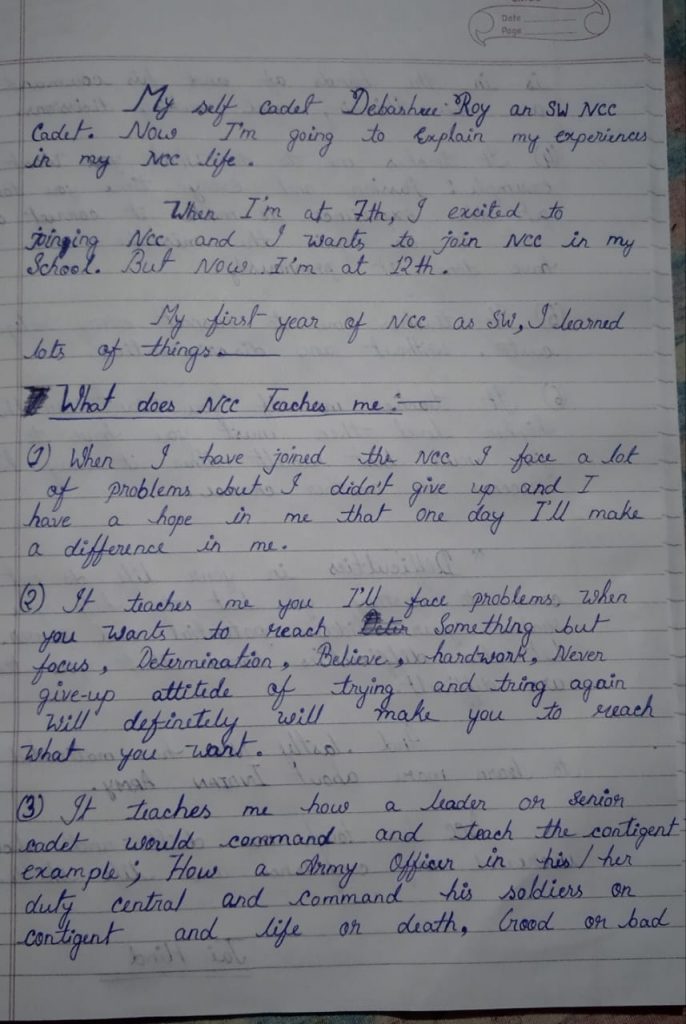 Date
Page
My self cadet Debashree Roy an SW NCC
Cadet. Now I'm going to Explain my experiences
in my NCC life.
When I'm at 7th, I excited to
joinging NCC and I wants to join NCC in my
School. But Now I'm at 12th.
My first year of NCC as SW, I learned
lots of things.
What does NCC Teaches me :-
(1) When I have joined the NCC I face a lot
of problems but I didn't give up and I
have a hope in me that one day I'll make
a difference in me.
(2) It teaches me you I'll face problems, when
you wants to reach Something but
focus, Determination, Believe, hardwork, Never
give-up attitede of trying and tring again
Will definetely will make you to reach
what you want.
(3) It teaches me how a leader or Senior
cadet would command and teach the contigent
example; How a Army Officer in his/her
duty central and command his soldiers on
contigent and life or death, Good or bad